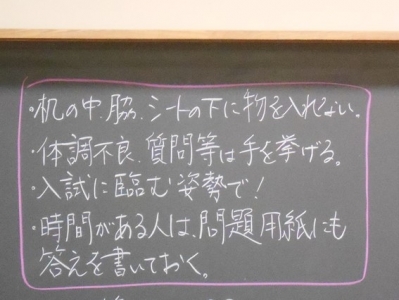 ・机の中、脇、シートの下に物を入れない。
・体調不良、質問等は手を挙げる。
・入試に臨む姿勢で！
・時間がある人は、問題用紙にも
答えを書いておく。